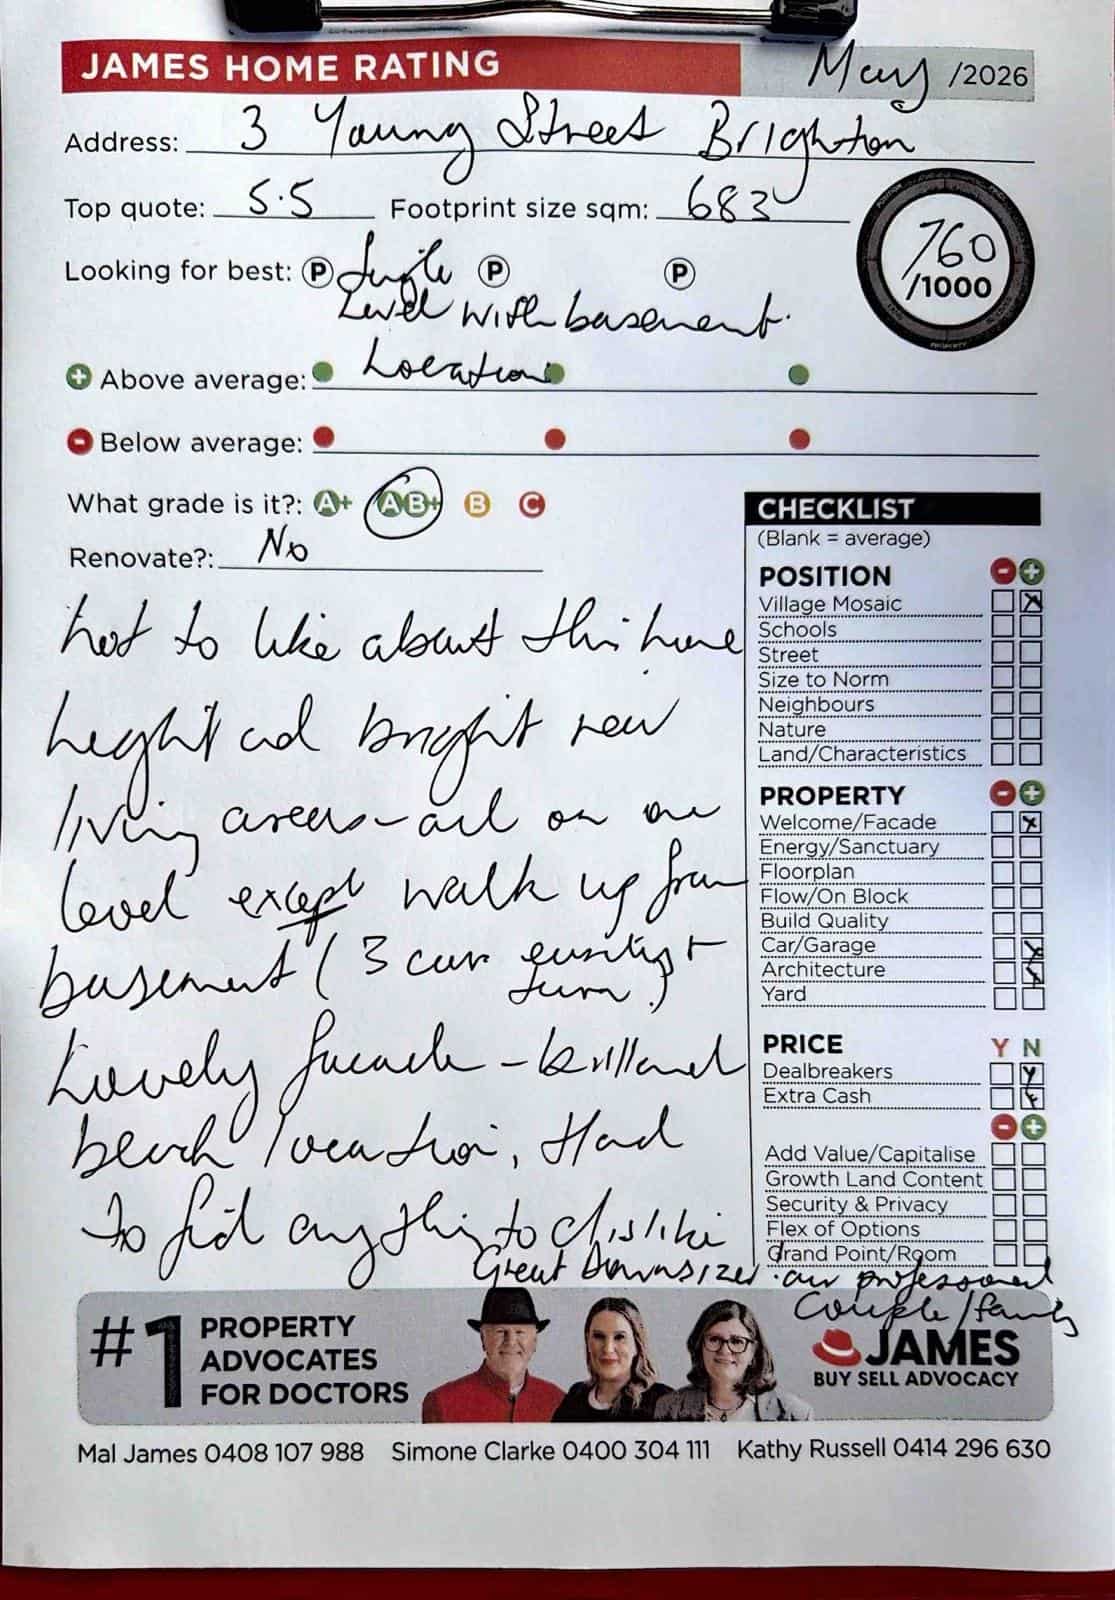 JAMES HOME RATING
May /2026
Address: 3 Young Street Brighton
Top quote: 5.5 Footprint size sqm: 683
760
/1000
Looking for best: P Single P P
Level with basement.
+ Above average: Location
- Below average:
What grade is it?: A+ AB+ B C
Renovate?: No
CHECKLIST
(Blank = average)
POSITION - +
Village Mosaic X
Schools
Street
Size to Norm
Neighbours
Nature
Land/Characteristics
PROPERTY - +
Welcome/Facade x
Energy/Sanctuary
Floorplan
Flow/On Block
Build Quality
Car/Garage x
Architecture x
Yard
PRICE Y N
Dealbreakers
Extra Cash
- +
Add Value/Capitalise
Growth Land Content
Security & Privacy
Flex of Options
Grand Point/Room
to like about this home
height and bright rear
living areas - all on one
level except walk up from
basement (3 car +
turn.)
Lovely facade - brilliant
beach location, Hard
to find anything to dislike
Great downsizer. or professional
couple/family
#1 PROPERTY
ADVOCATES
FOR DOCTORS
JAMES
BUY SELL ADVOCACY
Mal James 0408 107 988 Simone Clarke 0400 304 111 Kathy Russell 0414 296 630